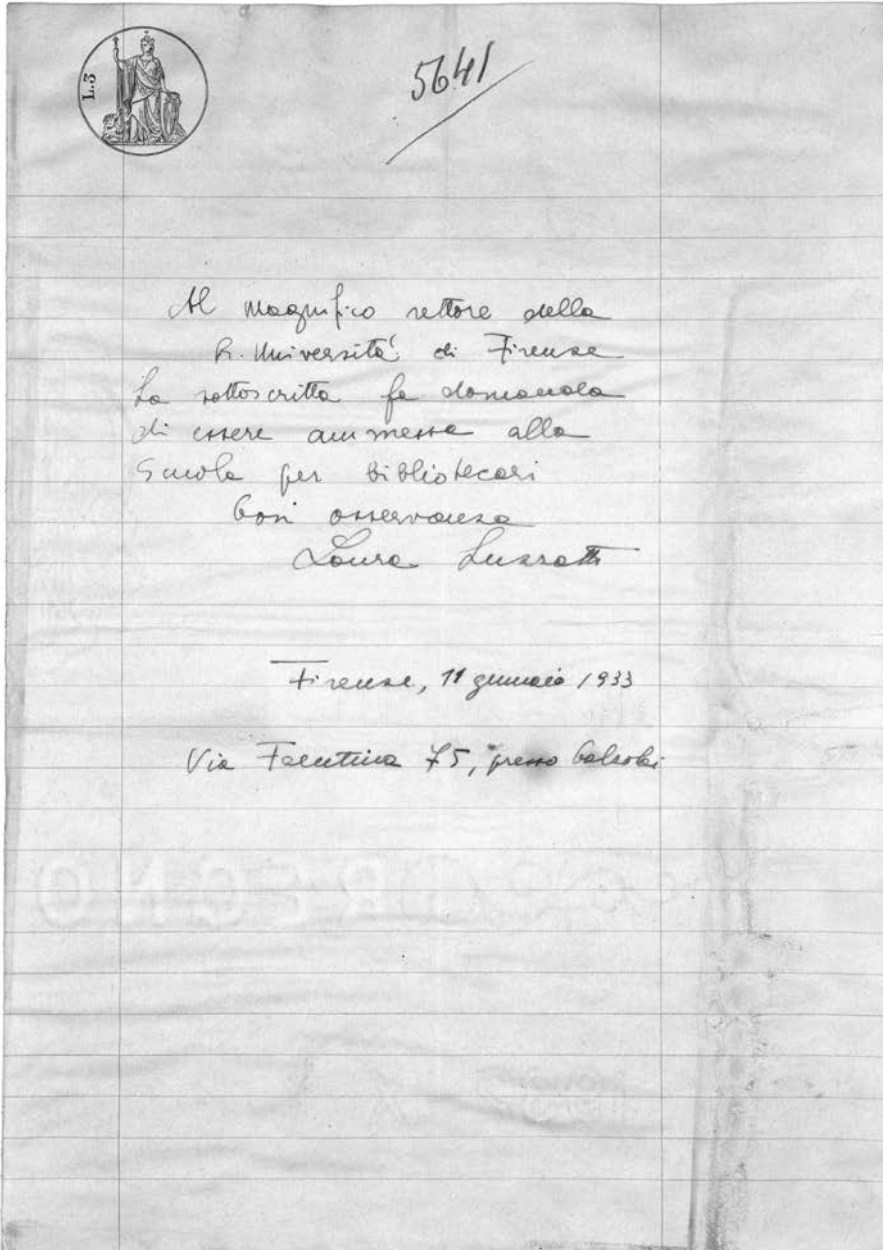 L.3
5641
Al Magnifico rettore della
R. Università di Firenze
La sottoscritta fa domanda
di essere ammessa alla
Scuola per bibliotecari
Con osservanza
Laura Luzzatto
Firenze, 11 gennaio 1933
Via Faentina 75, presso